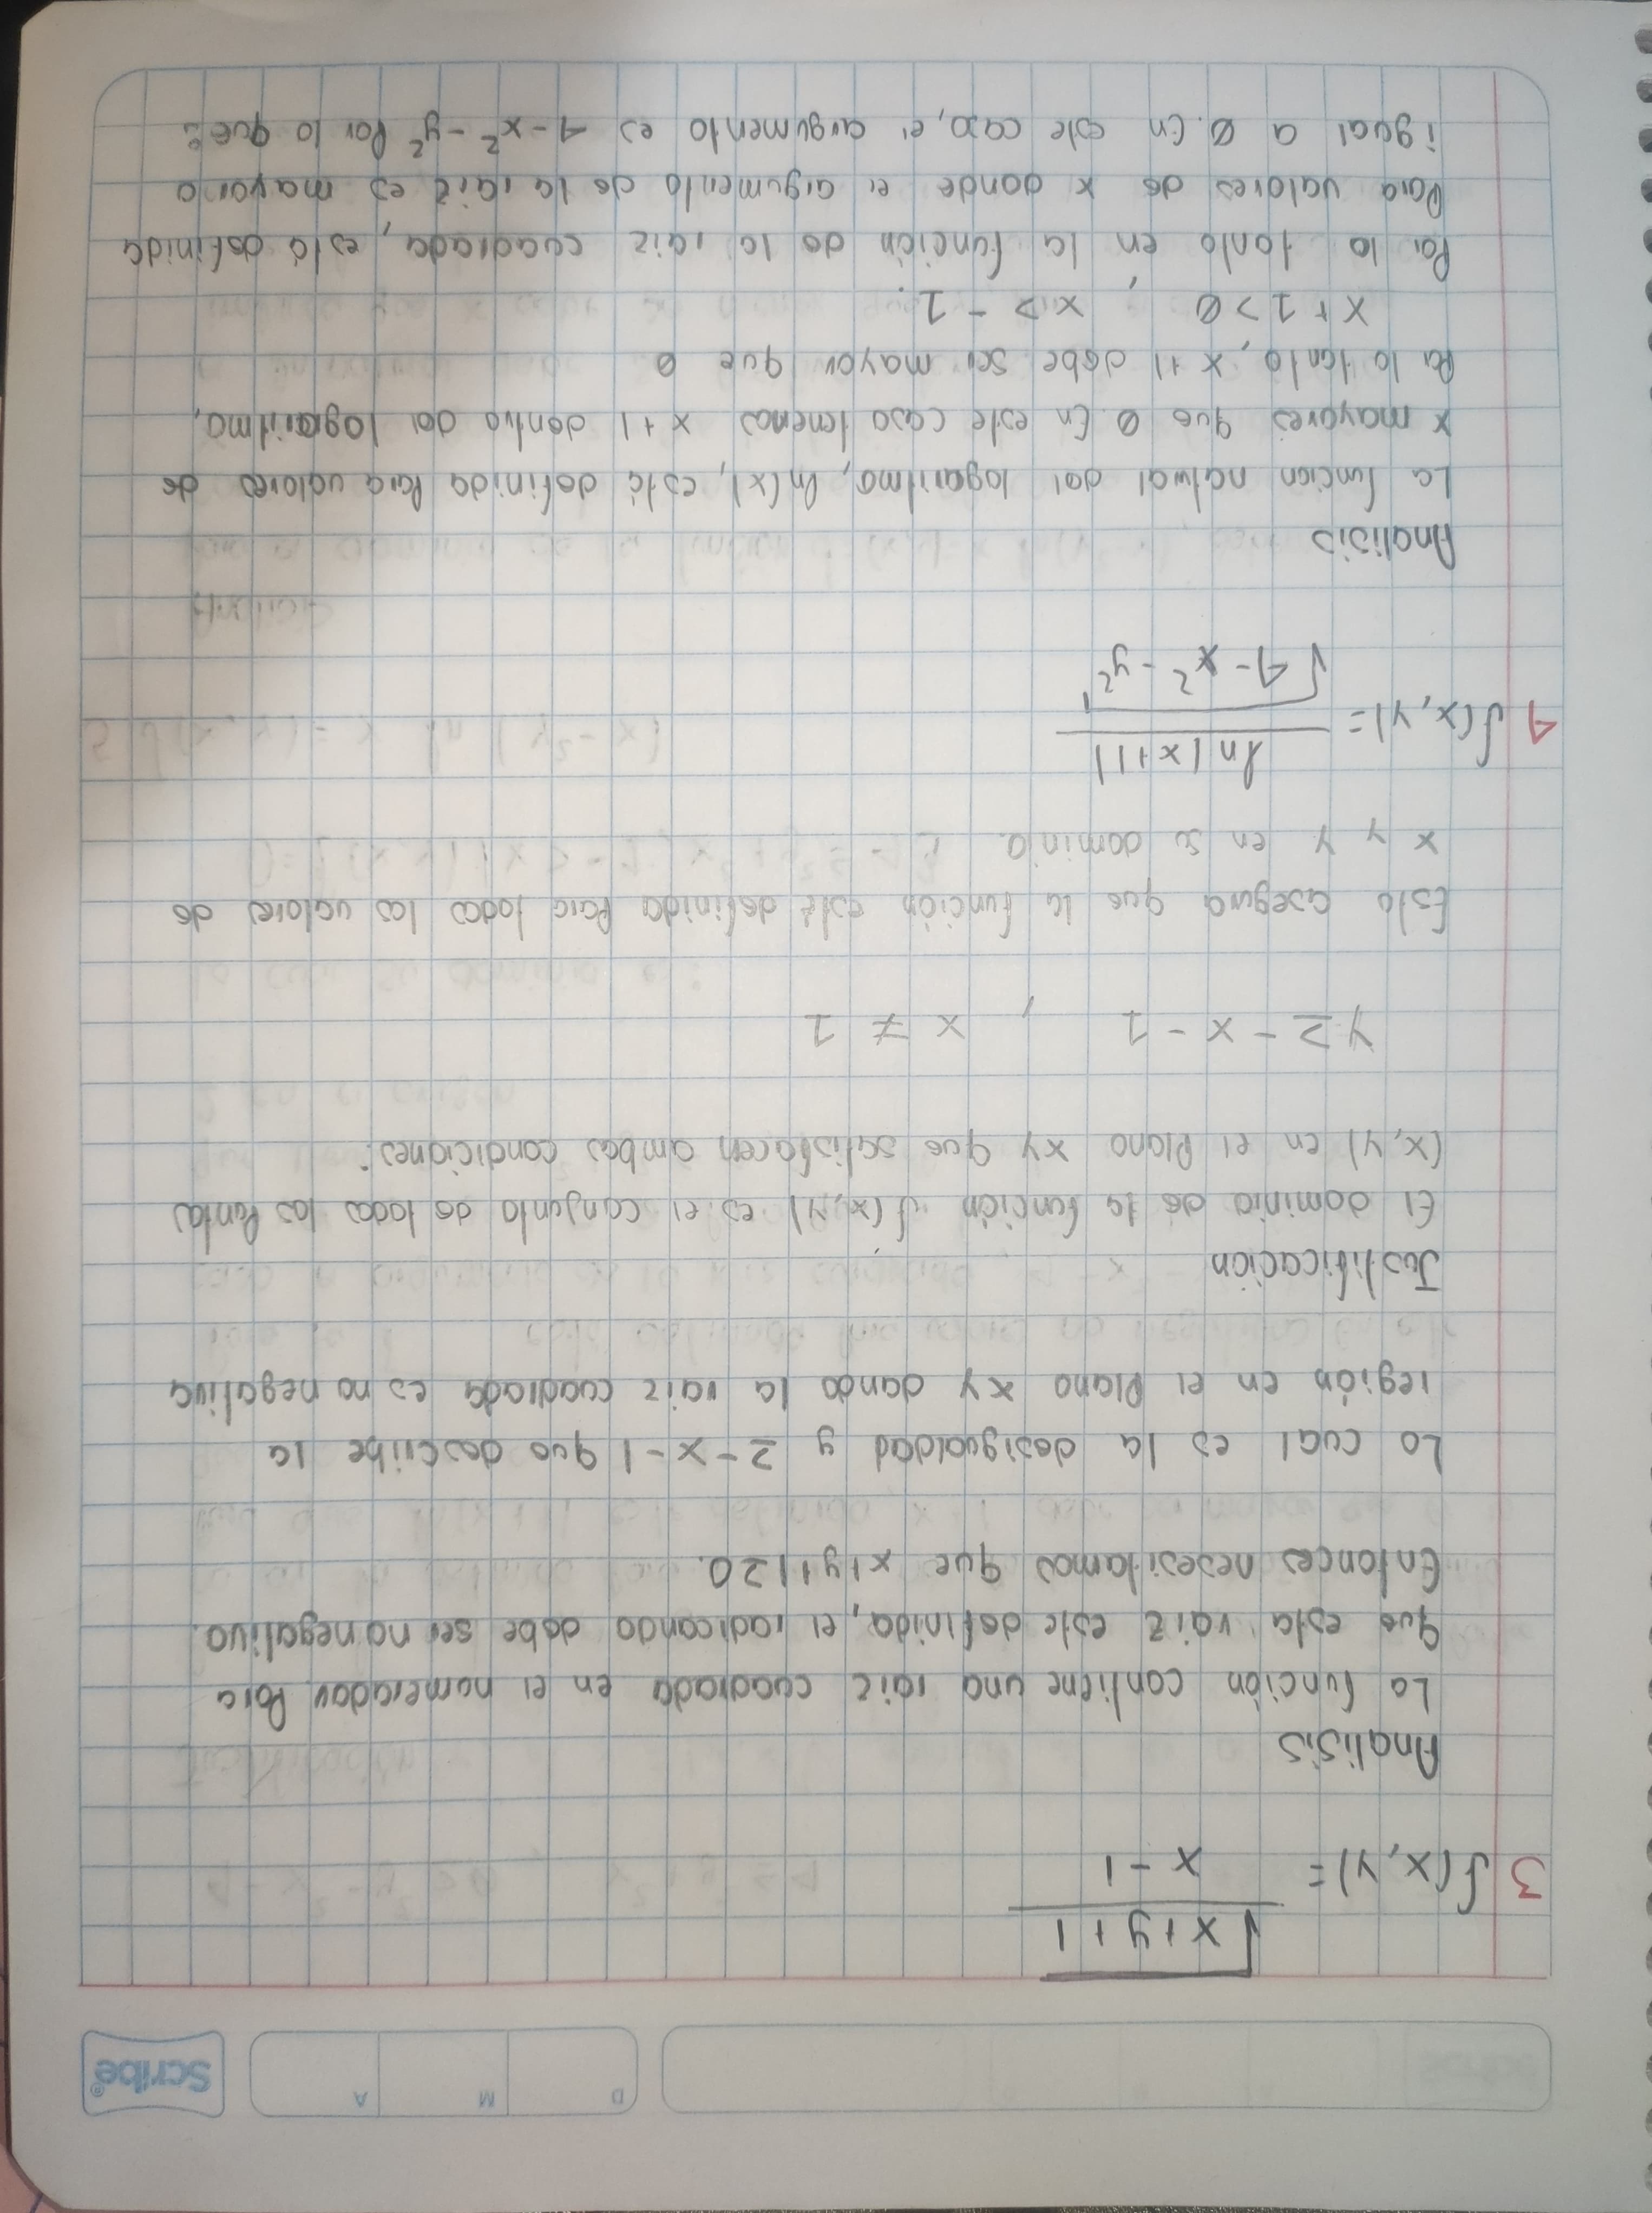 D M A Scribe®
3 f(x, y) = √(x+y+1) / (x-1)
Analisis
La función contiene una raiz cuadrada en el numerador. Para
que esta raiz este definida, el radicando debe ser no negativo.
Entonces necesitamos que x+y+1≥0.
Lo cual es la desigualdad y ≥-x-1 que describe la
región en el plano xy dando la raiz cuadrada es no negativa
Justificación
El dominio de la función f(x,y) es el conjunto de todos los Puntos
(x, y) en el Plano xy que satisfacen ambas condiciones:
y ≥ - x - 1 , x ≠ 1
Esto asegura que la función esté definida Para todos los valores de
x y y en su dominio.
4 f(x, y) = ln(x+1) / √(4-x²-y²)
Analisis
La funcion natural del logaritmo, ln(x), está definida Para valores de
x mayores que 0. En este caso tenemos x+1 dentro del logaritmo,
Po lo tanto, x+1 debe ser mayor que 0
x+1>0 , x> -1.
Por lo tanto en la función de la raiz cuadrada, está definida
Para valores de x donde el argumento de la raiz es mayor o
igual a 0. En este caso, el argumento es 4-x²-y² Por lo que: